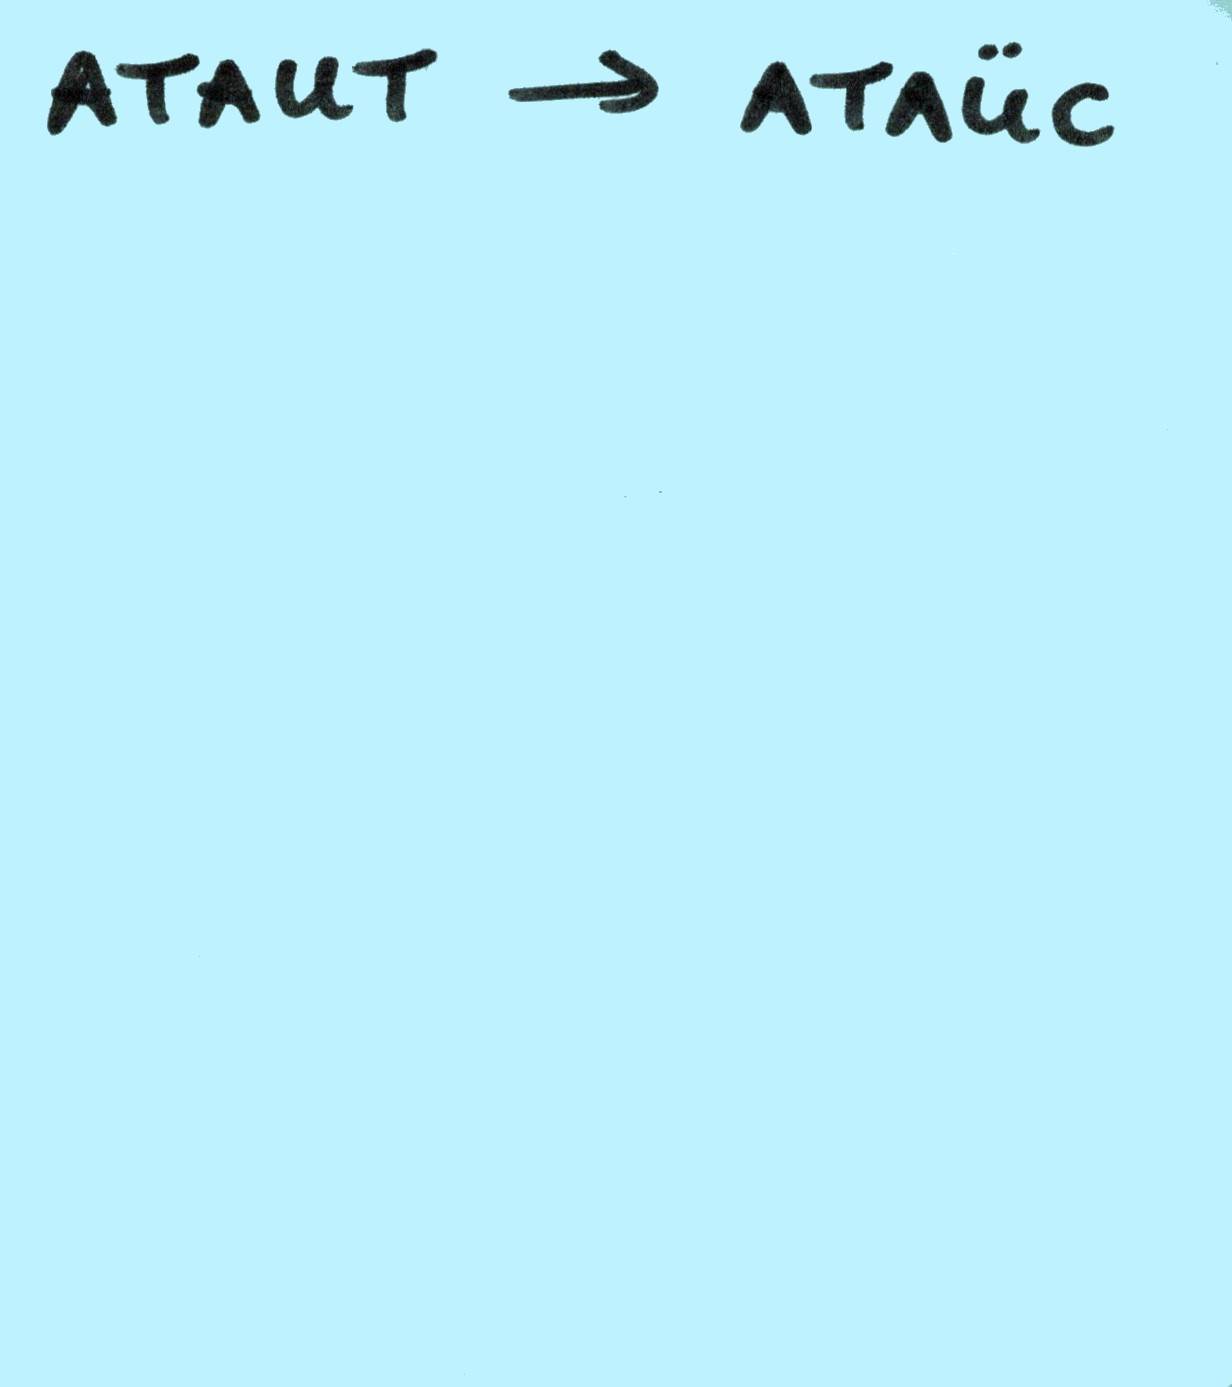 ATAUT → ATAÜC